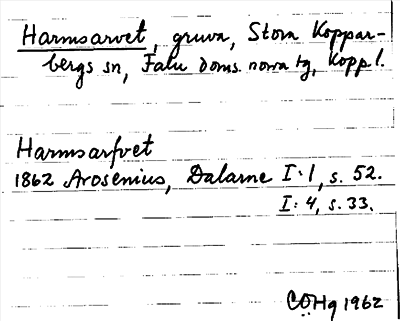 Harmsarvet, gruva, Stora Koppar-
bergs sn, Falu doms. norra tg, Kopp l.
Harmsarfvet
1862 Arosenius, Dalarne I:1, s. 52.
I:4, s. 33.
CÖHg 1962